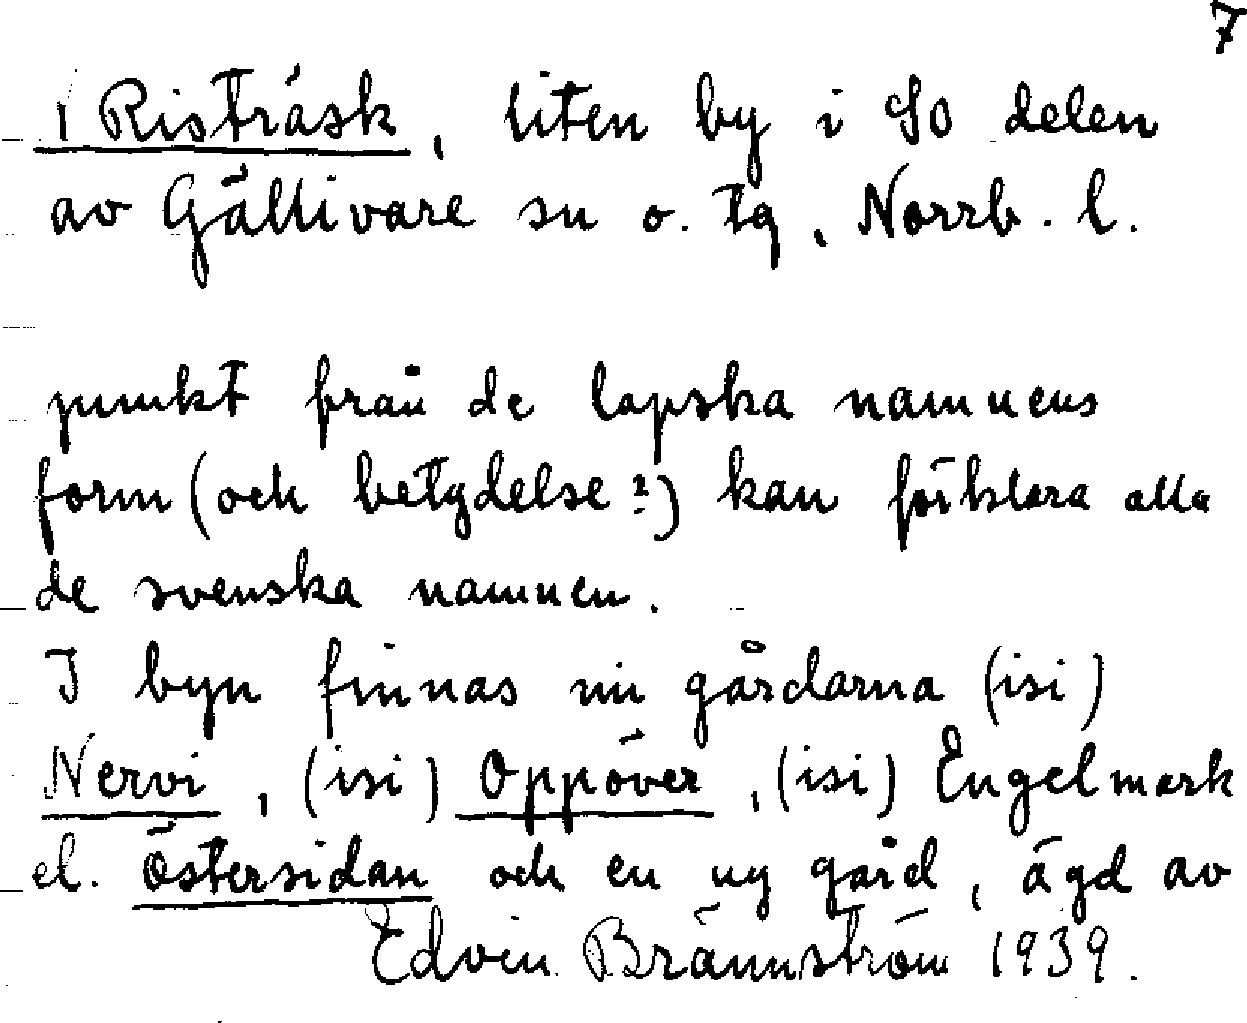 7
1 Risträsk, liten by i SO delen
av Gällivare sn o. tg, Norrb. l.
punkt från de lapska namnens
form (och betydelse?) kan förklara alla
de svenska namnen.
I byn finnas nu gårdarna (isi)
Nervi, (isi) Oppöver, (isi) Engelmark
el. Östersidan och en ny gård, ägd av
Edvin Brännström 1939.